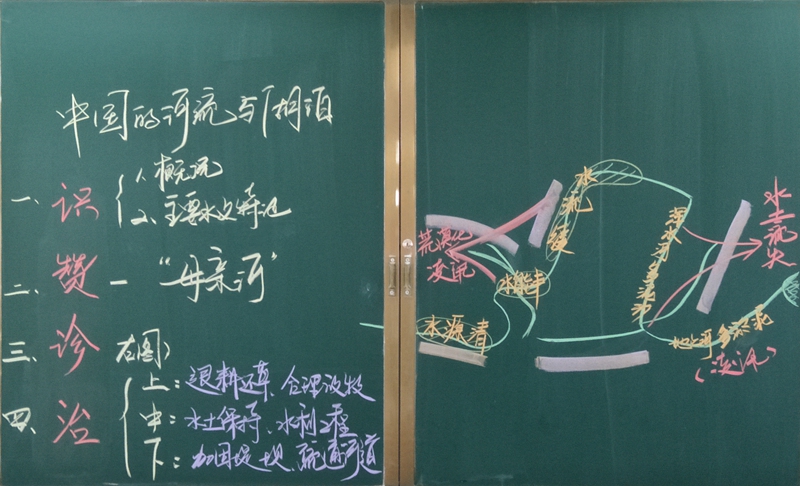 中国的河流与湖泊
一、识 1、概况
2、主要水文特征
二、赞 — “母亲河”
三、诊 右图)
四、治 上:退耕还草、合理放牧
中:水土保持、水利工程
下:加固堤坝、疏通河道
水流缓
荒漠化
凌汛
水能丰
水源清
水土流失
地上河 多泥沙
(凌汛)